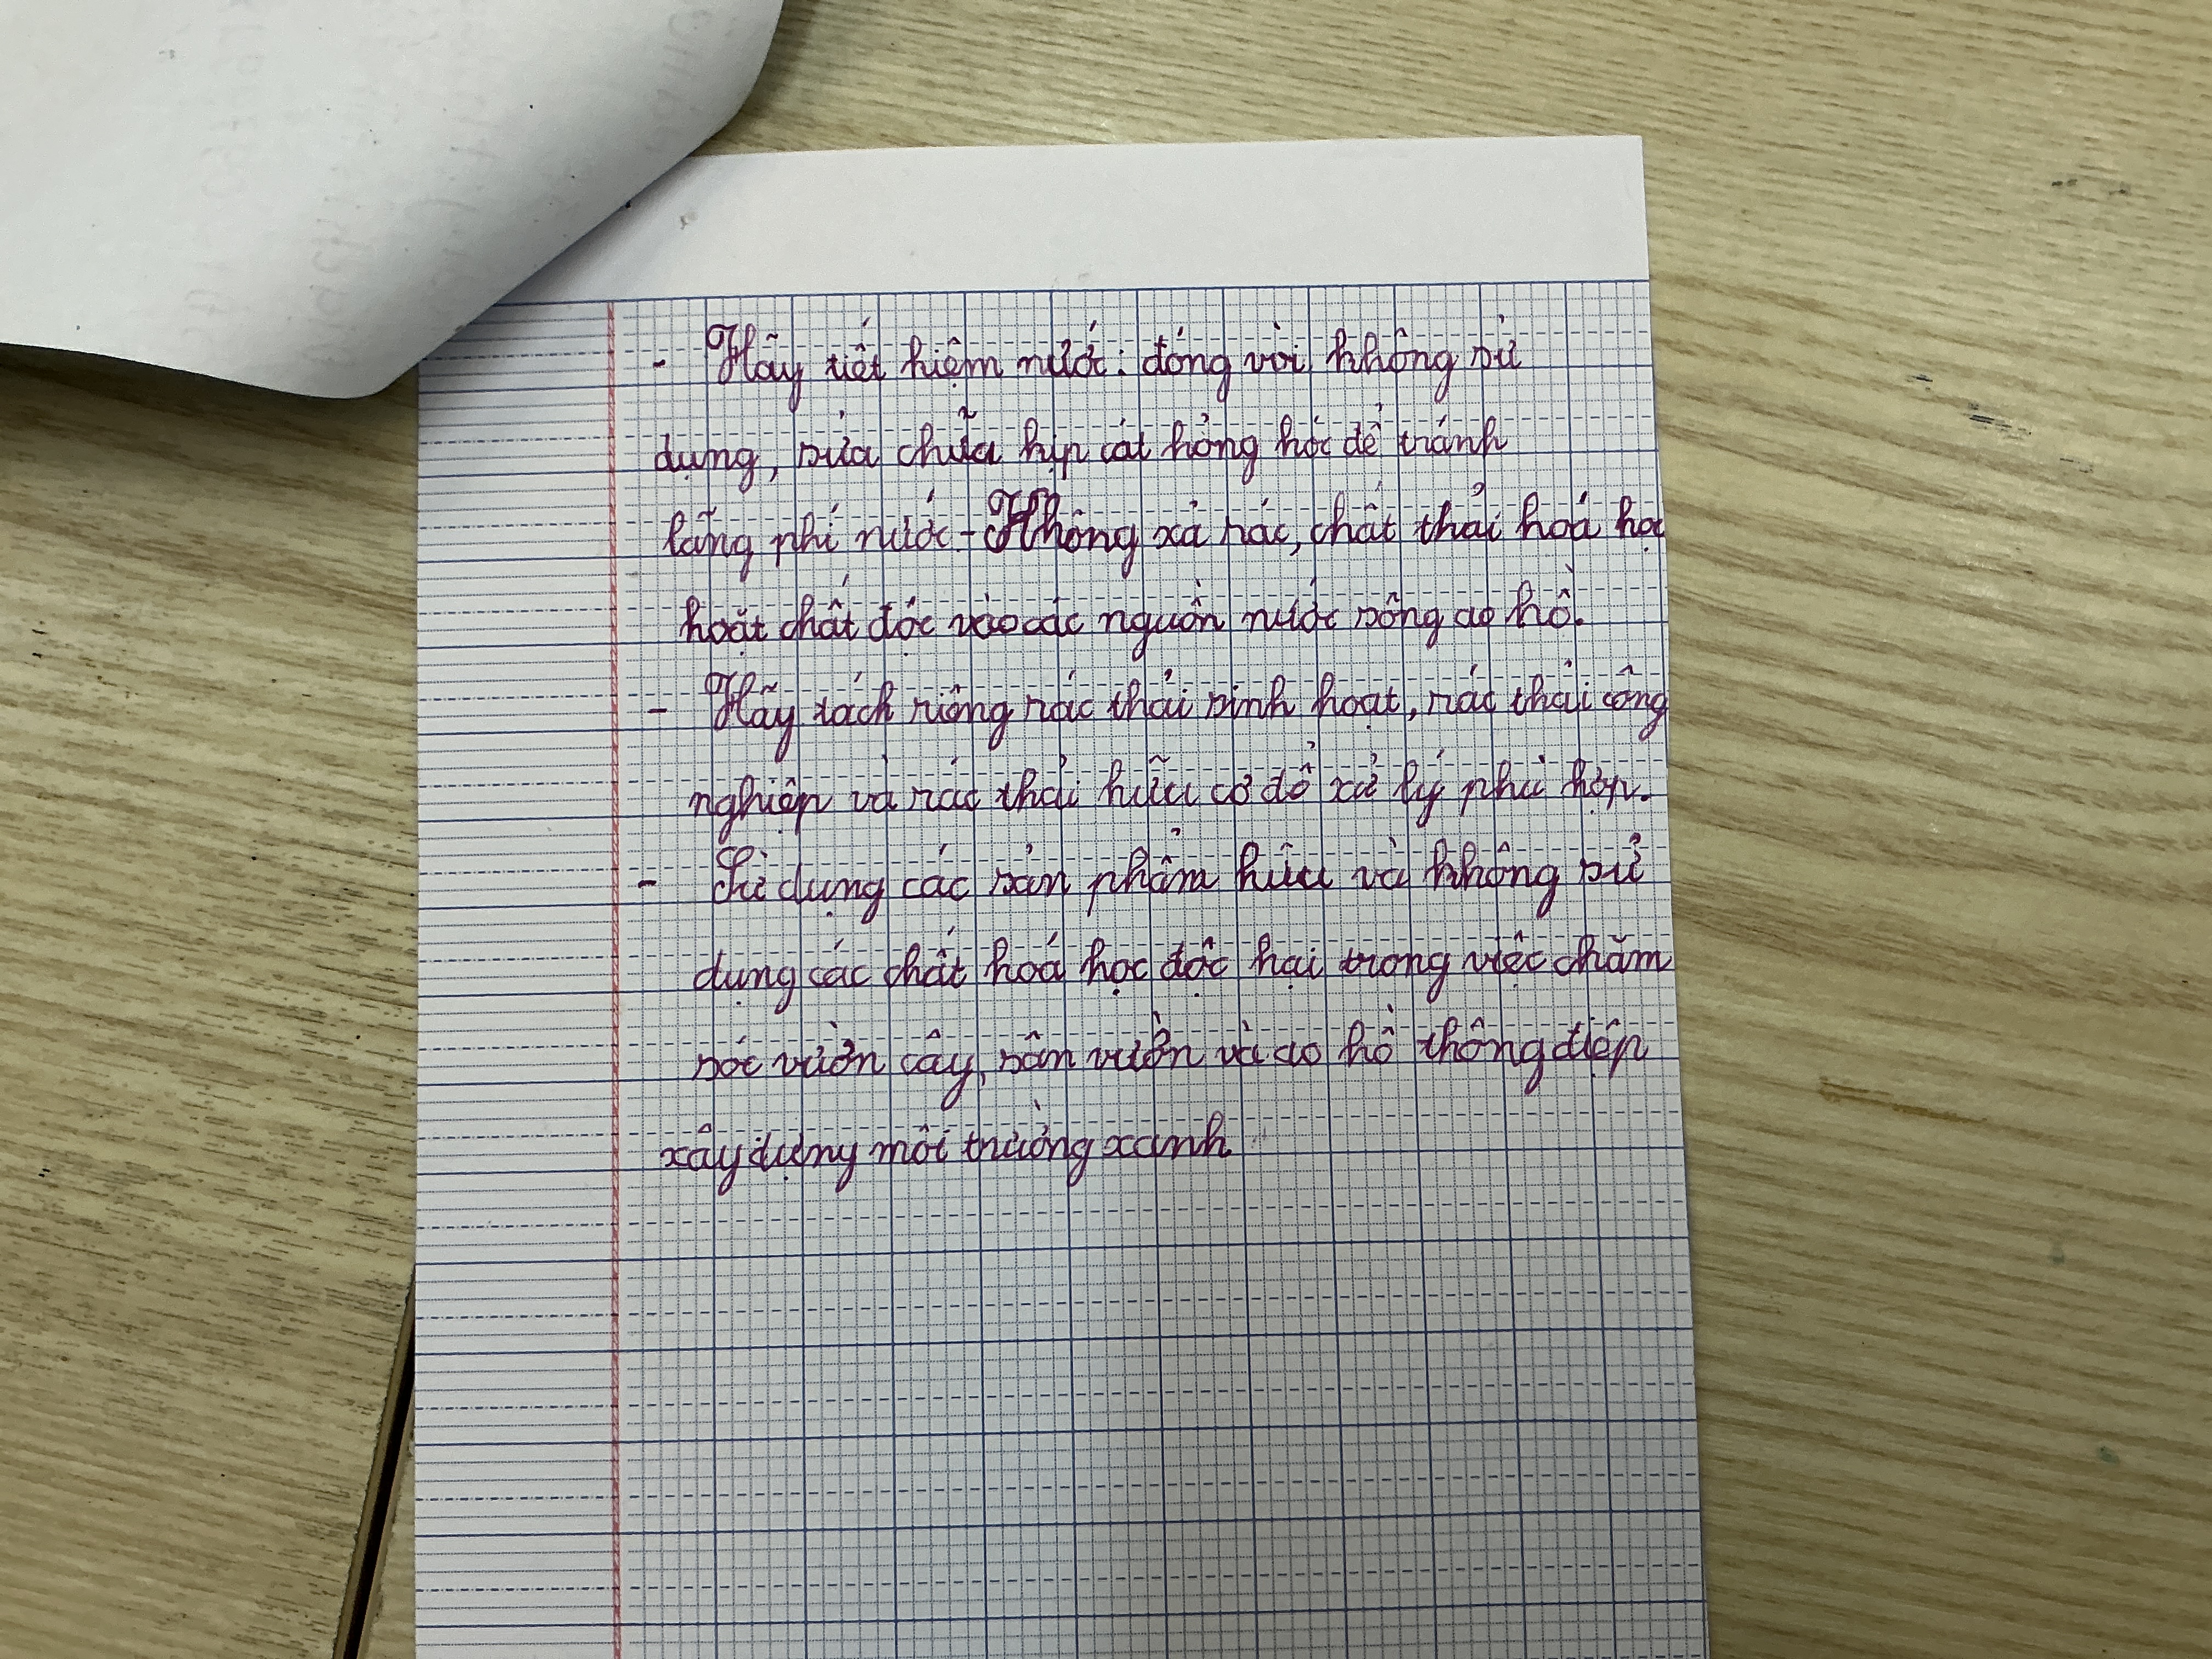 - Hãy tiết kiệm nước: đóng vòi không sử
dụng, sửa chữa kịp cát hỏng hóc để tránh
lãng phí nước - Không xả rác, chất thải hoá học
hoặt chất độc vào các nguồn nước sông ao hồ.
- Hãy tách riêng rác thải sinh hoạt, rác thải công
nghiệp và rác thải hữu cơ để xử lý phù hợp.
- Sử dụng các sản phẩm hữu và không sử
dụng các chất hoá học độc hại trong việc chăm
sóc vườn cây, sân vườn và ao hồ thông điệp
xây dựng môi trường xanh